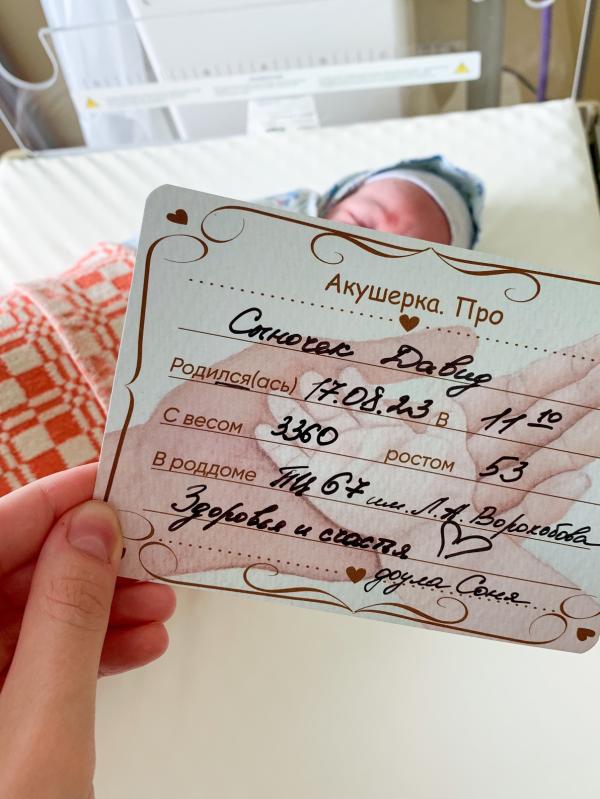 Акушерка. Про
Сыночек Давид
Родился(ась) 17.08.23 в 11 10
С весом 3360 ростом 53
В роддоме ПЦ 67 им. Л.А. Ворохобова
Здоровья и счастья ♡
доула Соня